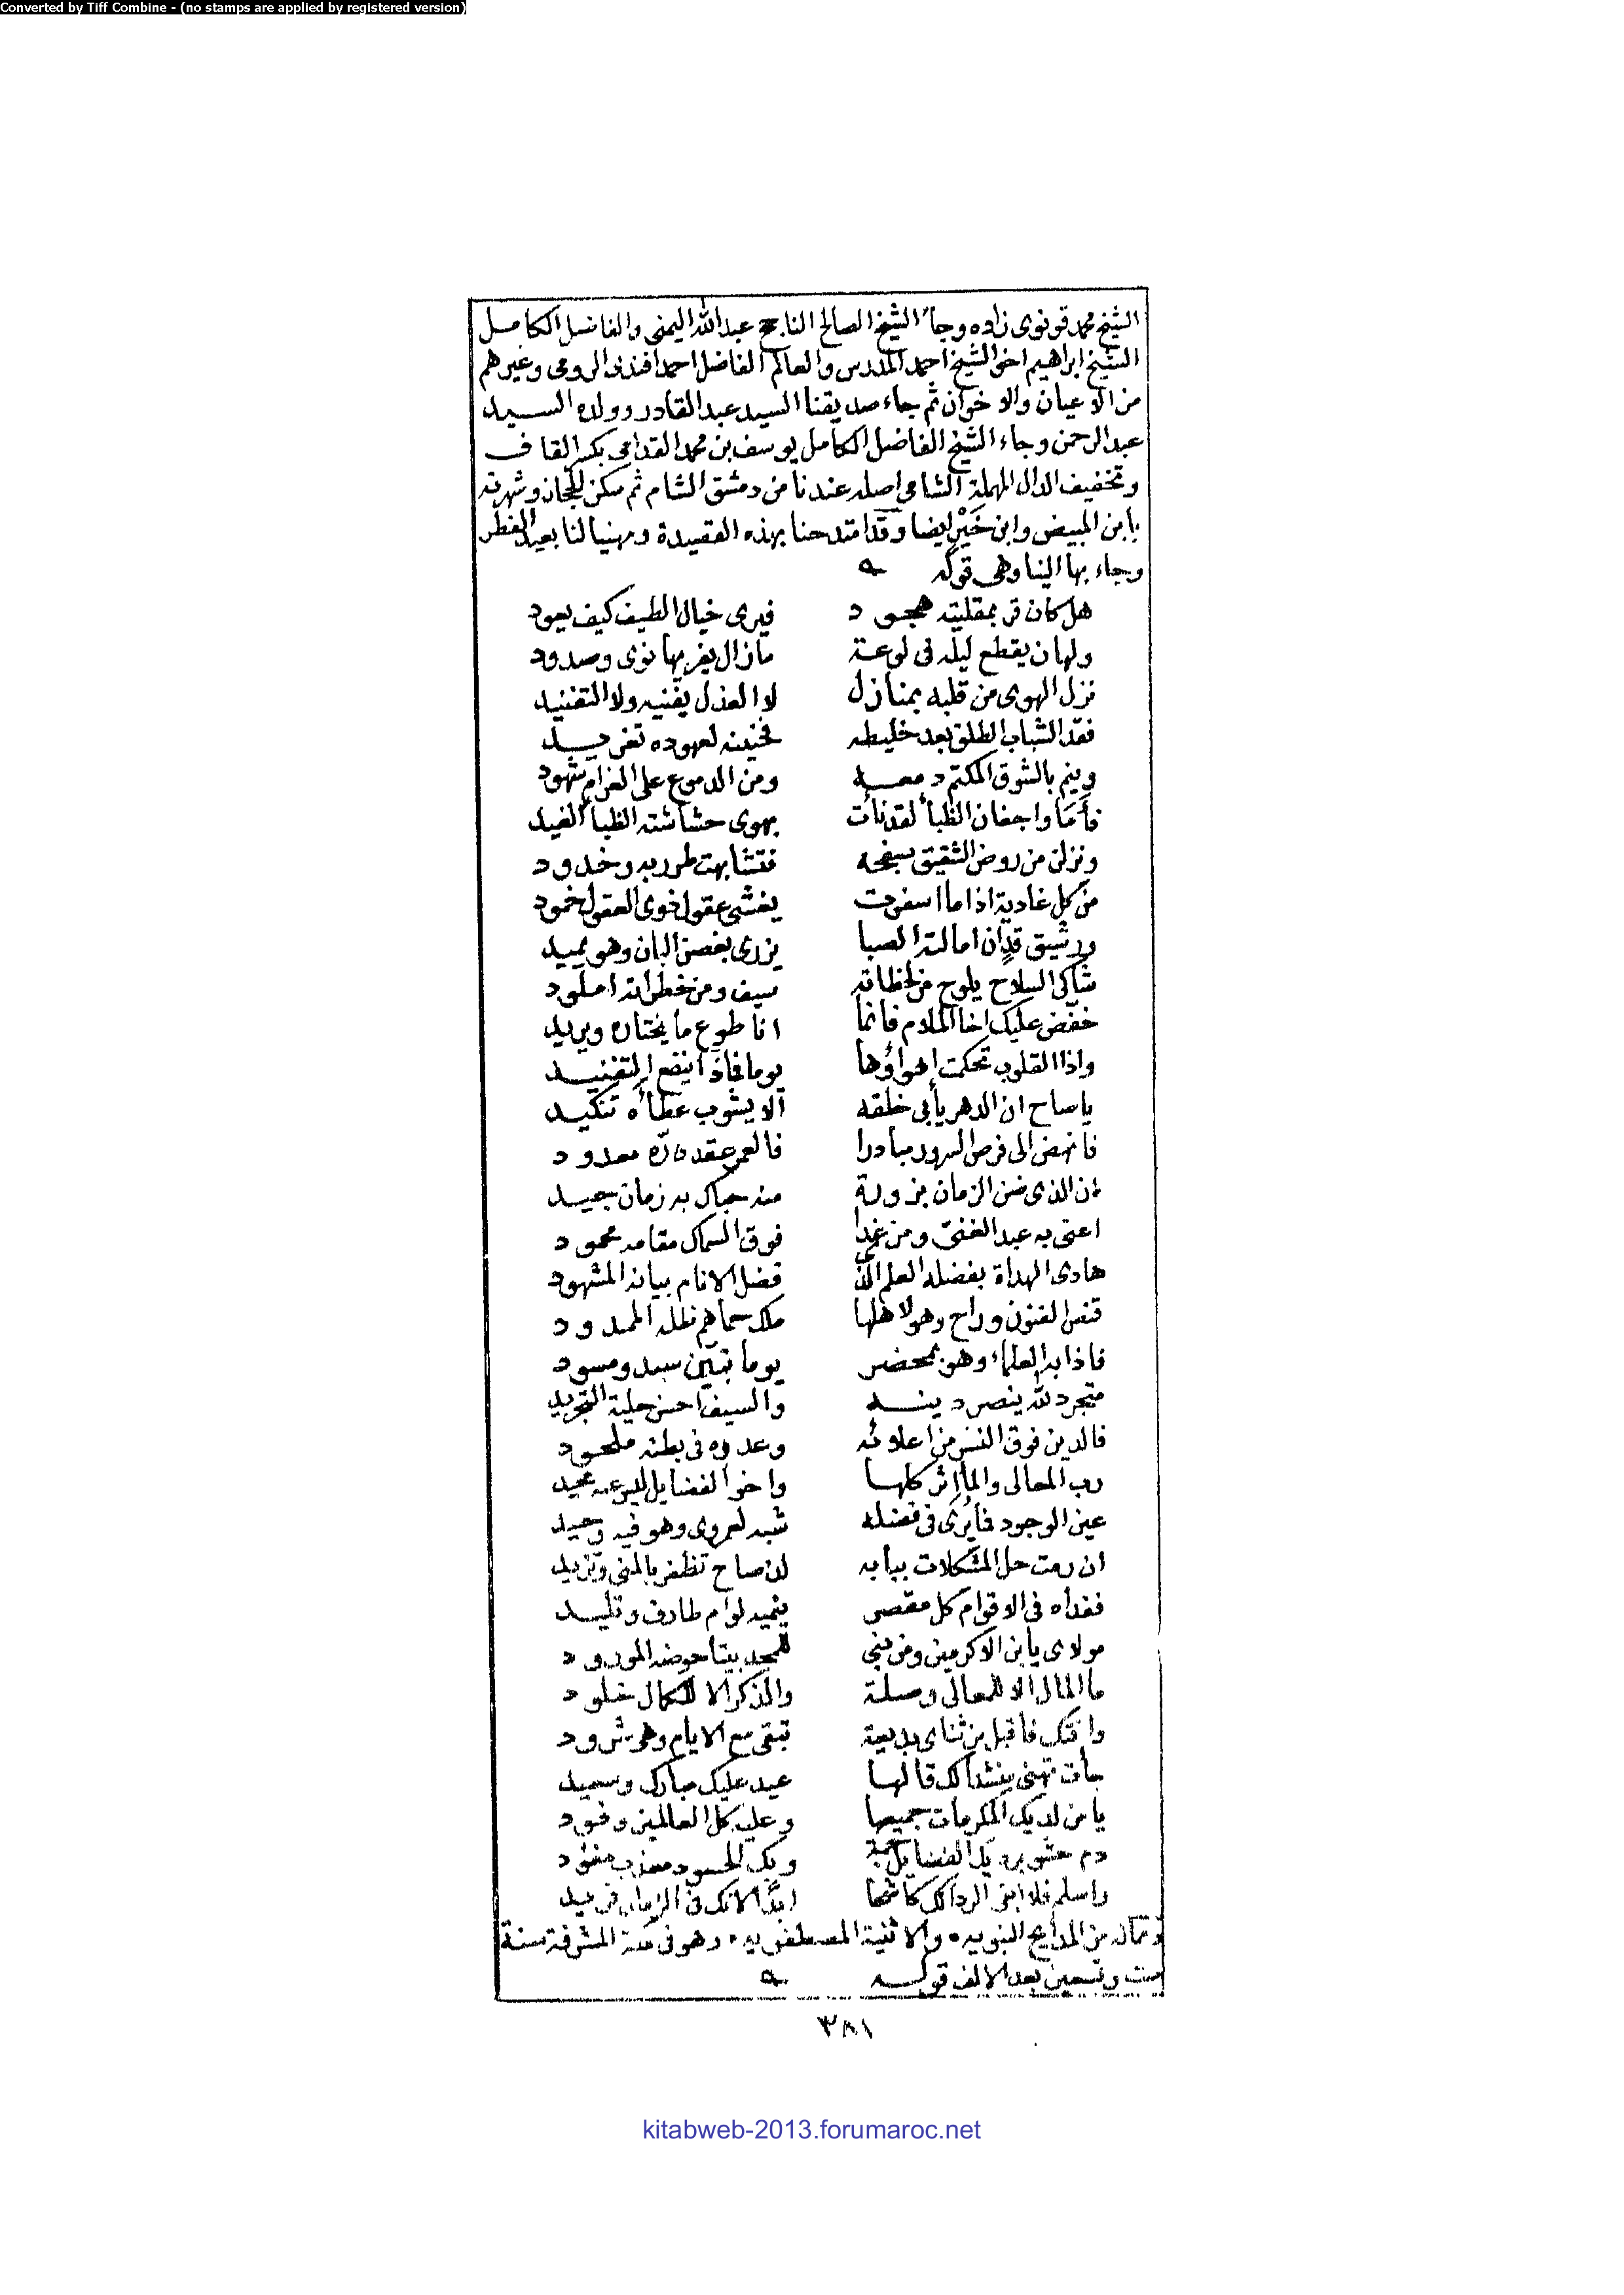 Converted by Tiff Combine - (no stamps are applied by registered version)
الشيخ محمد قونوى زاده وجاء الشيخ الصالح الناجح عبدالله اليمنى والفاضل الكامل
الشيخ ابراهيم اخى الشيخ احمد المدرس والعالم الفاضل احمد افندى الرومى وغيرهم
من الاعيان والاخوان ثم جاء صديقنا السيد عبد القادر وولده السيد
عبد الرحمن وجاء الشيخ الفاضل الكامل يوسف بن محمد القدامى بكسر القاف
وتخفيف الدال المهملة الشامى اصله عندنا من دمشق الشام ثم سكن للحجاز وشهرته
بابن المبيض وابن خَيْر ايضا وقد امتدحنا بهذه القصيدة ومهنيا لنا بعيد الفطر
وجاء بها الينا وهى قوله
هل كان قر بمقلتيه هجود فيرى خيال الطيف كيف يعود
ولهان يقطع ليله فى لوعة مازال يغريها نوى وصدود
نزل الهوى من قلبه بمنازل لا العذل يفنيه ولا التفنيد
فقد الشباب الطلق بعد خليطه فحنينه لعهوده تغريد
وينم بالشوق المكتم دمعه ومن الدموع على الغرام شهود
فأمَا واجفان الظبا لقد نأت بهوى حشاشته الظباء الغيد
ونزلن من روض الشقيق بسفحه فتشابهت طرر به وخدود
من كل غادية اذا ما اسفرت يغشى عقول ذوى العقول خمود
ورشيق قدٍّ ان امالته الصبا يزرى بغصن البان وهو يميد
شاكى السلاح يلوح من لحظاته سيف ومن خطراته املود
خفض عليك اخا الملام فانما انا طوع ما يختاره ويريد
واذا القلوب تحكمت اهواؤها يوما فماذا ينفع التفنيد
ياصاح ان الدهر يأبى خلقه الا يشوب عطاءه تنكيد
فانهض الى فرص السرور مبادرا فالعمر عقد دره معدود
ان الذى ضن الزمان بزورة منه حباك به زمان جيد
اعنى به عبد الغنىّ ومن غدا فوق السماك مقامه محمود
هادى الهداة بفضله العلم الذى فضل الانام بيانه المشهود
قنص الفنون وراح وهو لاهلها ملك سماهم ظله الممدود
فاذا بدا العلماء وهو بمحضر يوما تبيّن سيد ومسود
متجرد لله ينصر دينه والسيف احسن حلية التجريد
فالدين فوق النسر من اعلائه وعدوه فى بطنه ملحود
رب المعالى والمآثر كلها واخو الفضايل للبرية عميد
عين الوجود فما يُرَى فى فضله شبه لعمرى وهو فيه وحيد
ان رمت حل المشكلات ببابه لذ صاح تظفر بالمنى وتزيد
ففداه فى الاقوام كل مقصر ينميه لؤم طارف وتليد
مولاى يا ابن الاكرمين ومن بنى للمجد بيتا حوضه المورود
ما المال الا للمعالى وصلة والذكر الا للكمال خلود
وافتك فاقبل من ثناى بديعة تبقى مع الايام وهى شرود
جاءت تهنى منشدا لك قالها عيد عليك مبارك وسعيد
يا من لديك المكرمات جميعها وعليه كل العالمين وفود
دم حشو برديك الفضايل وبك الحسود معذب مفؤد
واسلم فلا ابقى الردا لك كاشحا ابدًا لانك فى الزمان فريد
وقال من المدايح النبويه والاثنية المصطفويه وهو فى مكة المشرفة سنة
ست وتسعين بعد الالف قوله
٣٨١
kitabweb-2013.forumaroc.net